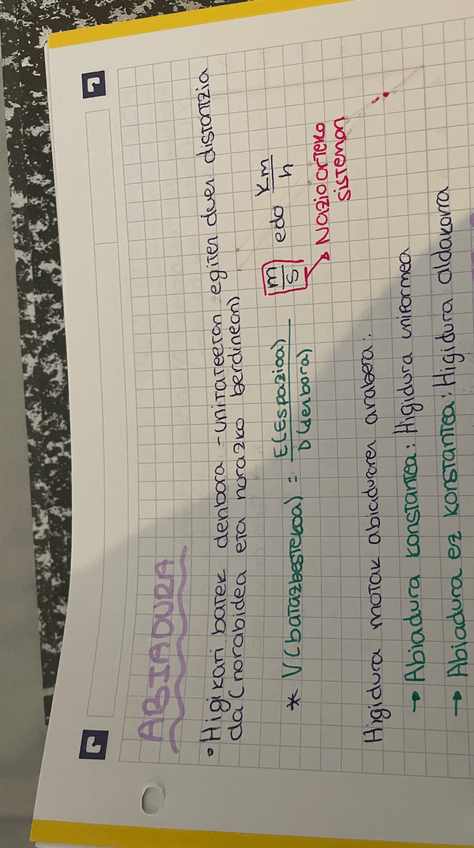 ABIADURA
• Higikari batek denbora-unitateetan egiten duen distantzia
da (norabidea eta noranzko berdinean)
* V(batazbestekoa) = E(Espazioa) / D(denbora) m/s edo km/h
→ Nazioarteko
sisteman
Higidura motak abiaduraren arabera:
→ Abiadura konstantea: Higidura uniformea
→ Abiadura ez konstantea: Higidura aldakorra